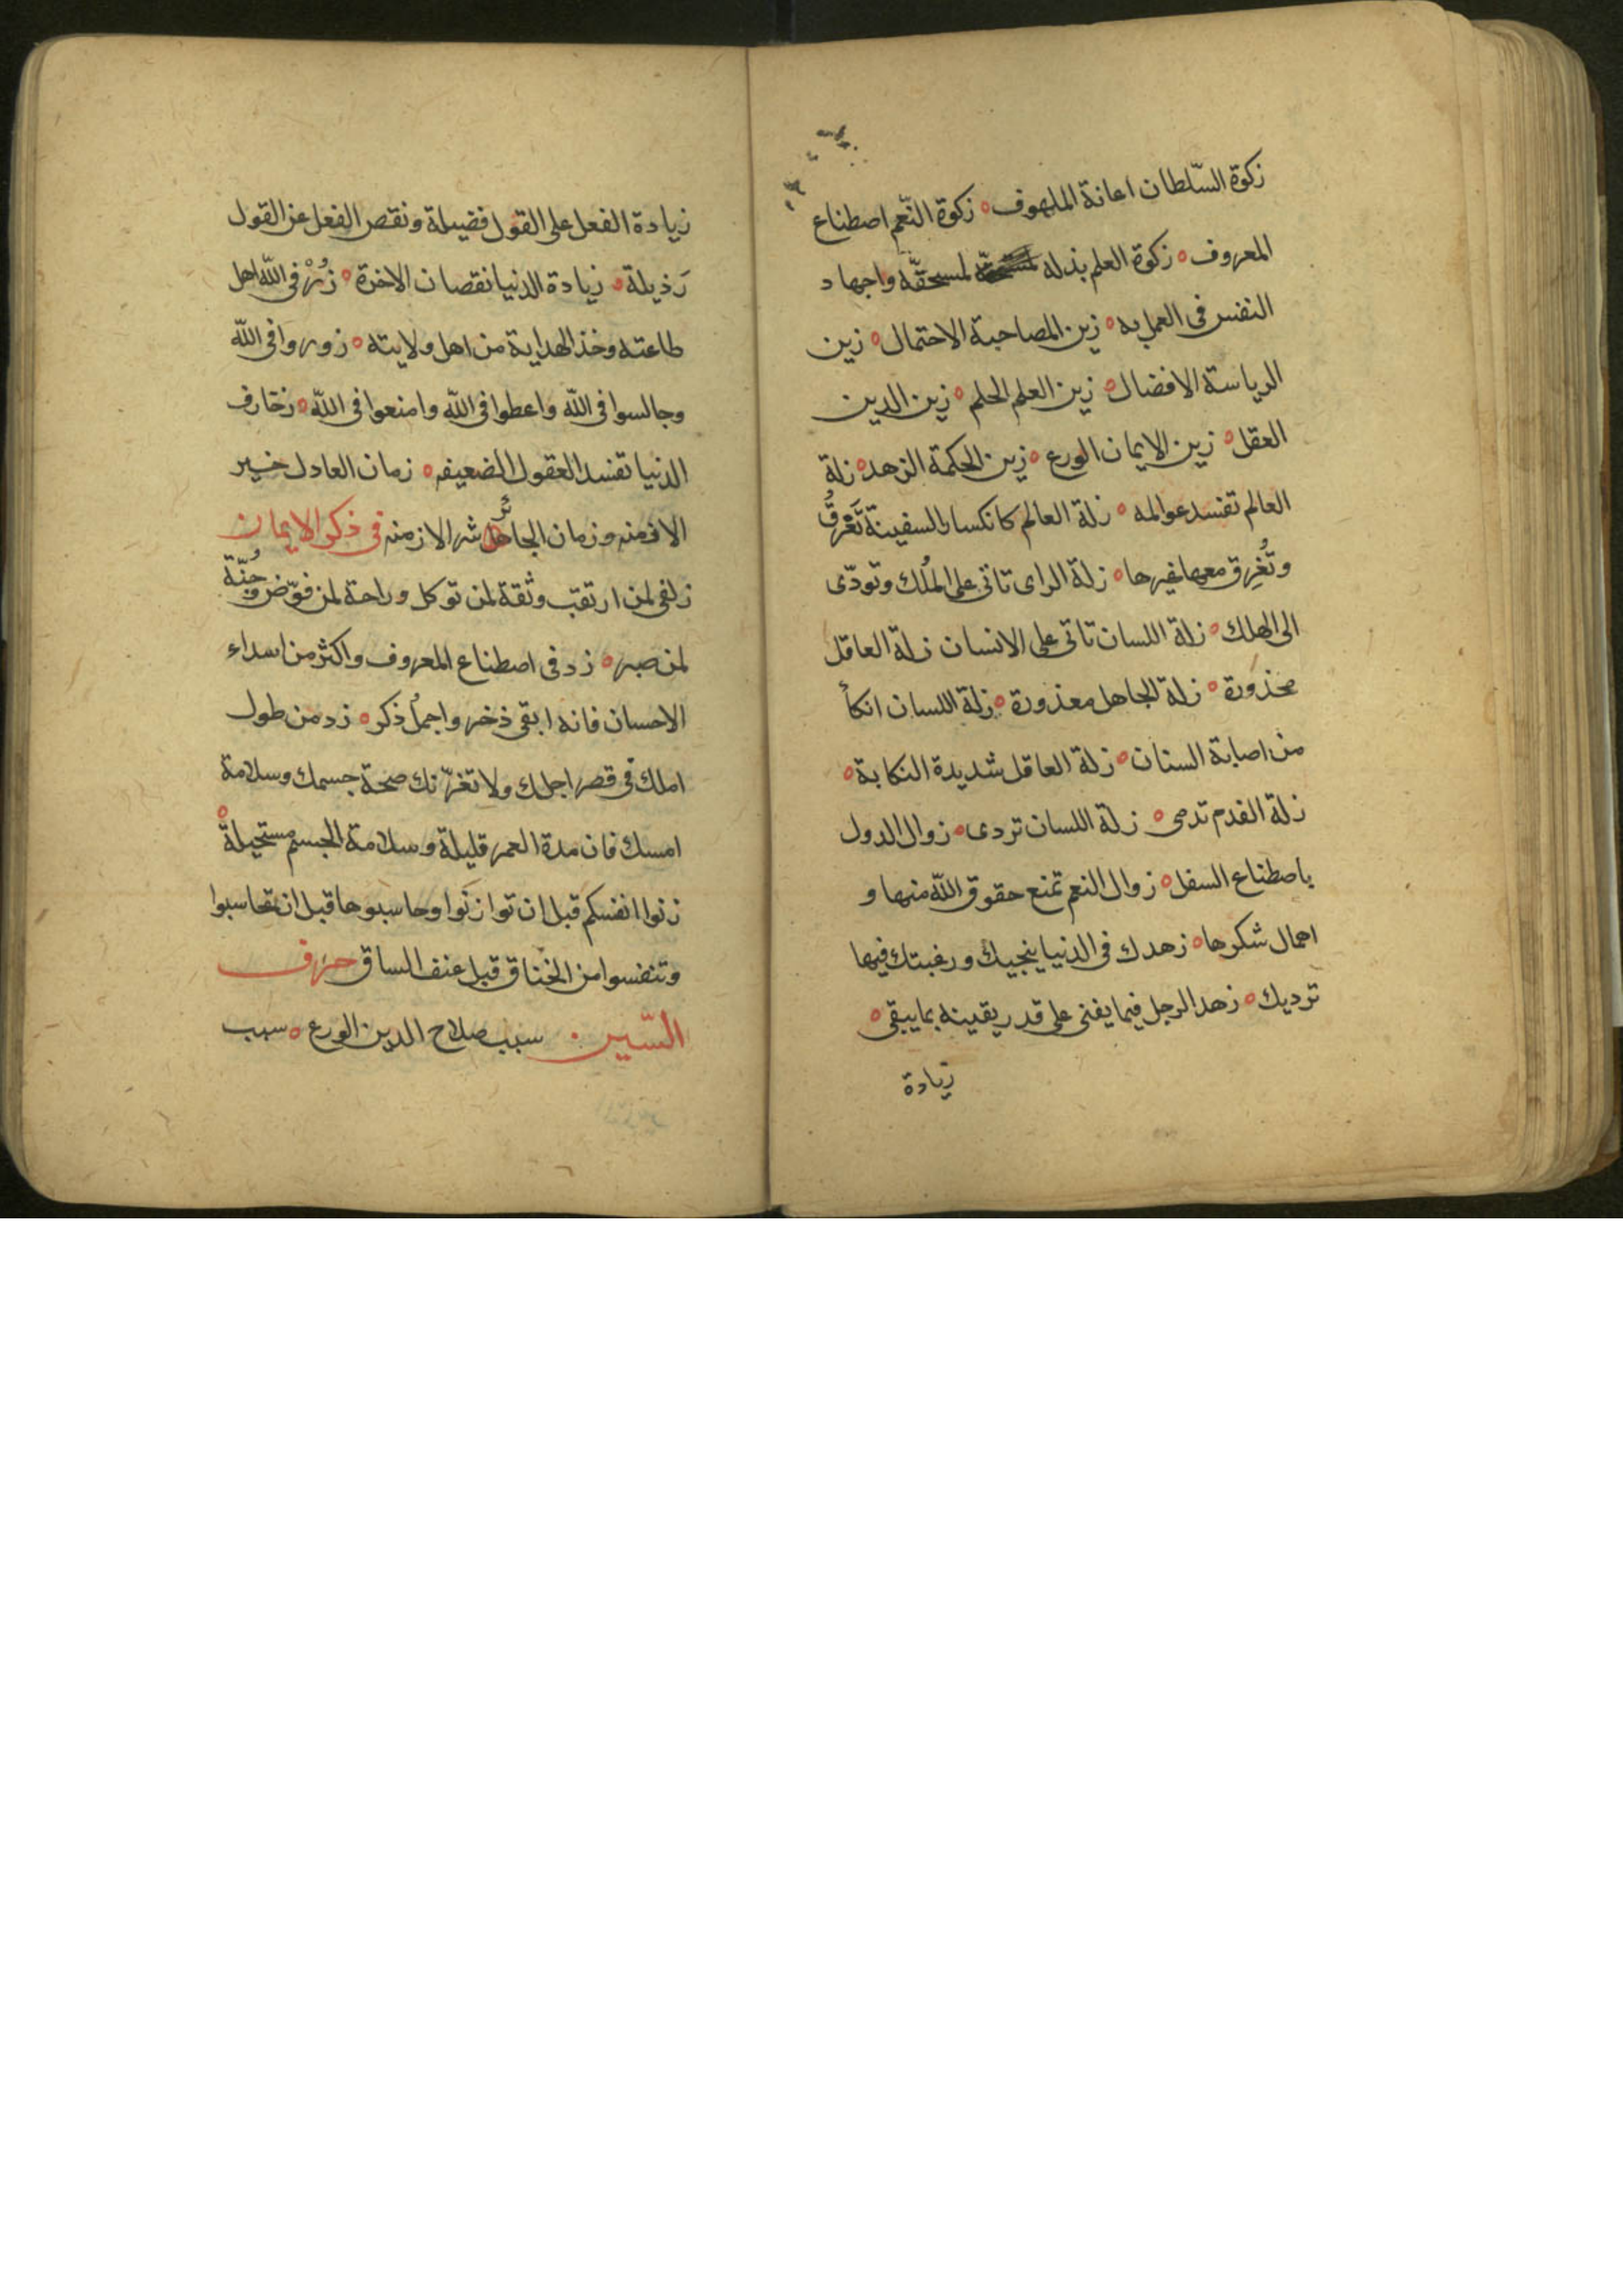 زكوة السّلطان اعانة الملهوف ه زكوة النّعم اصطناع
المعروف ه زكوة العلم بذله لمستحقّه واجهاد
النفس فى العمل به ه زين المصاحبة الاحتمال ه زين
الرياسة الافضال ه زين العلم الحلم ه زين الدين
العقل ه زين الايمان الورع ه زين الحكمة الزهد ه زلة
العالم تفسد عوالمه ه زلة العالم كانكسار السفينة تَغْرقُ
وتُغرِق معها غيرها ه زلة الراى تاتى على المُلك وتودّى
الى الهلك ه زلة اللسان تاتى على الانسان زلة العاقل
محذورة ه زلة الجاهل معذورة ه زلة اللسان انكأ
من اصابة السنان ه زلة العاقل شديدة النكاية ه
زلة القدم تدمى ه زلة اللسان تردى ه زوال الدول
باصطناع السفل ه زوال النعم تمنع حقوق اللّه منها و
اهمال شكرها ه زهدك فى الدنيا ينجيك ورغبتك فيها
ترديك ه زهد الرجل فيما يفنى على قدر يقينه بما يبقى ه
زيادة
زيادة الفعل على القول فضيلة ونقص الفعل عن القول
رَذيلة ه زيادة الدنيا نقصان الاخرة ه زُرْ فى اللّه اهل
طاعته وخذ الهداية من اهل ولايته ه زوروا فى اللّه
وجالسوا فى اللّه واعطوا فى اللّه وامنعوا فى اللّه ه زخارف
الدنيا تفسد العقول الضعيفه ه زمان العادل خير
الازمنه وزمان الجائر شر الازمنه فى ذكر الايمان
زلفى لمن ارتقب وثقة لمن توكل وراحة لمن فوّض وجُنّة
لمن صبر ه زد فى اصطناع المعروف واكثر من اسداء
الاحسان فانه ابقى ذخر واجملُ ذكر ه زد من طول
املك فى قصر اجلك ولا تغرّنك صحة جسمك وسلامة
امسك فان مدة العمر قليلة وسلامة الجسم مستحيلة ه
زنوا انفسكم قبل ان توازنوا وحاسبوها قبل ان تحاسبوا
وتنفسوا من الخناق قبل عنف الساق حرف
السّين سبب صلاح الدين الورع ه سبب